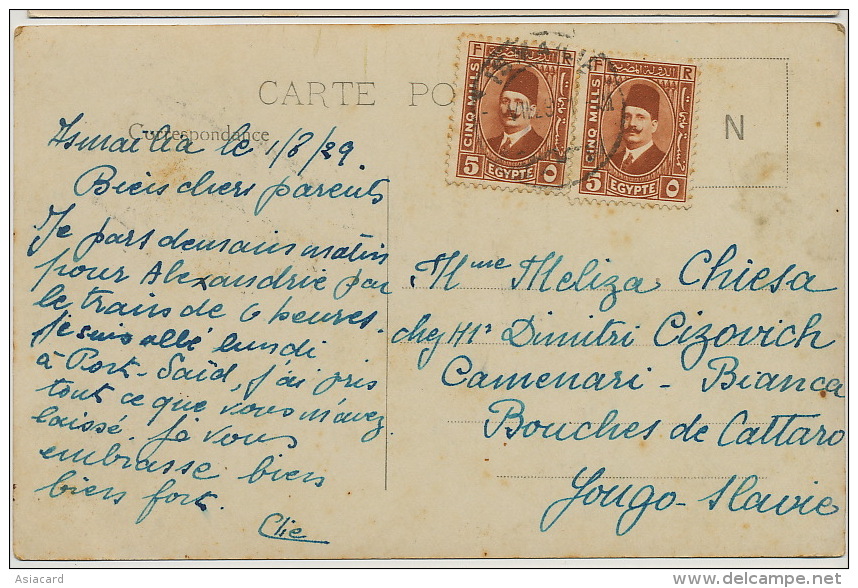 CARTE PO
Correspondance
N
F R
CINQ MILLS
الدولة المصرية
5 EGYPTE ٥
F R
CINQ MILLS
الدولة المصرية
5 EGYPTE ٥
Ismailia le 1/8/29
Biens chers parents
Je pars demain matin
pour Alexandrie par
le train de 6 heures.
Je suis allé lundi
à Port-Saïd, j'ai pris
tout ce que vous m'avez
laissé. Je vous
embrasse bien
bien fort.
Clie
Mme Meliza Chiesa
chez Mr Dimitri Cizovich
Camenari - Bianca
Bouches de Cattaro
Yougo-slavie
Asiacard
delcampe.net